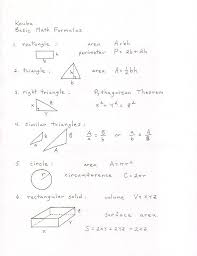 Kouba
Basic Math Formulas
1. rectangle : area A=bh
h b perimeter P=2b+2h
2. triangle : area A=½bh
h b
3. right triangle : Pythagorean Theorem
x²+y²=z²
4. similar triangles :
a/b = A/B or a/A = b/B
5. circle : area A=πr²
r circumference C=2πr
6. rectangular solid : volume V=xyz
surface area
S=2xy+2yz+2xz